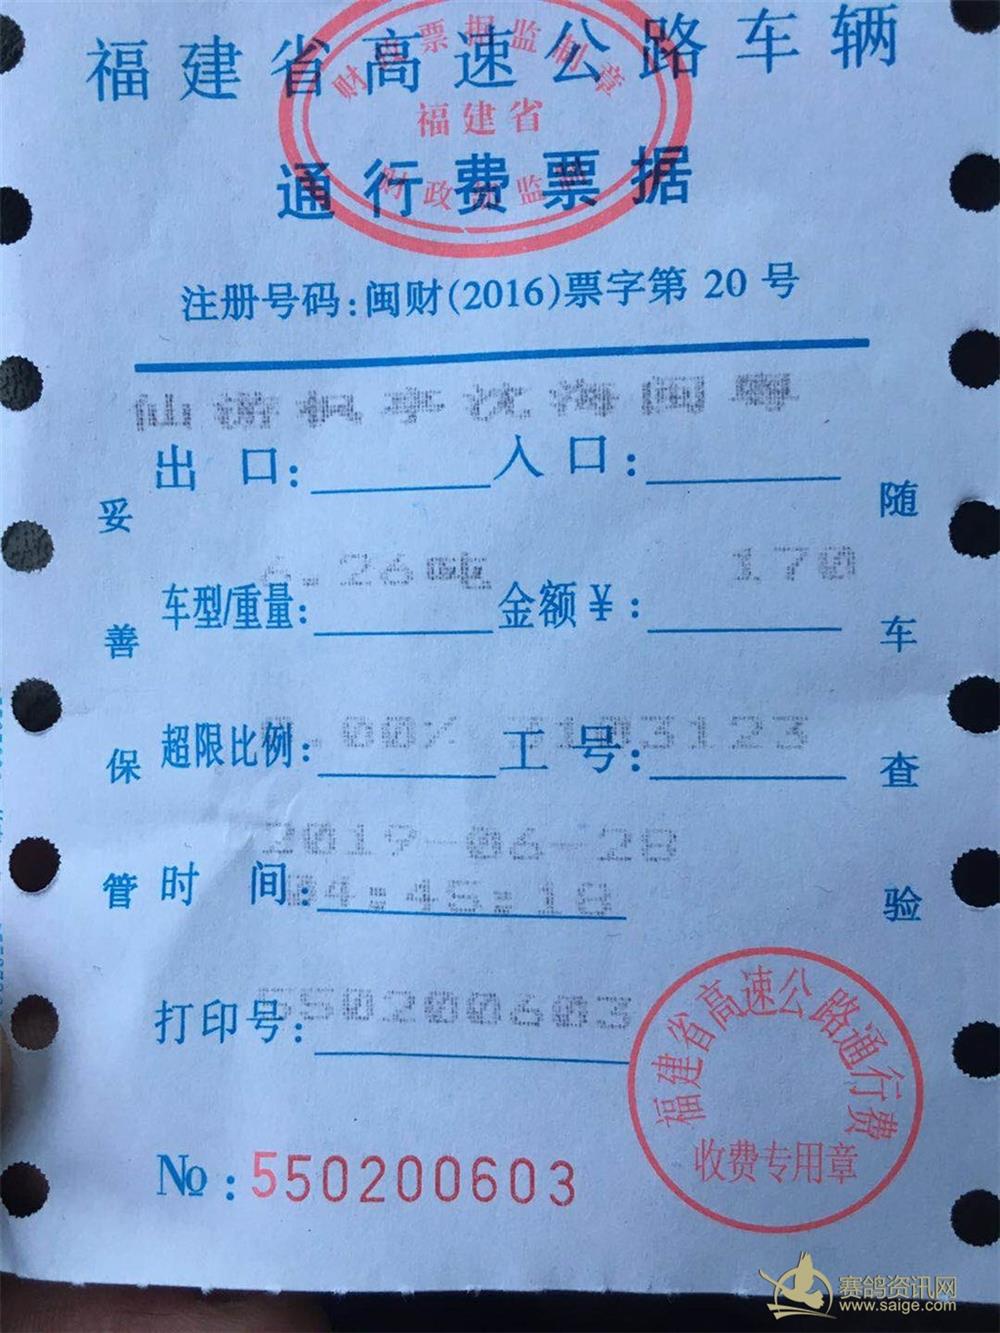 福建省高速公路车辆
财政票据监制章
福建省
通行费票据
注册号码:闽财(2016)票字第 20 号
仙游枫亭沈海闽粤
出 口: 入 口:
6.26吨 170
车型/重量: 金额¥:
0.00% 3103123
超限比例: 工 号:
2019-06-28
时 间:
04:45:18
550200603
打印号:
№:550200603
妥善保管
随车查验
福建省高速公路通行费
收费专用章
赛鸽资讯网
www.saige.com